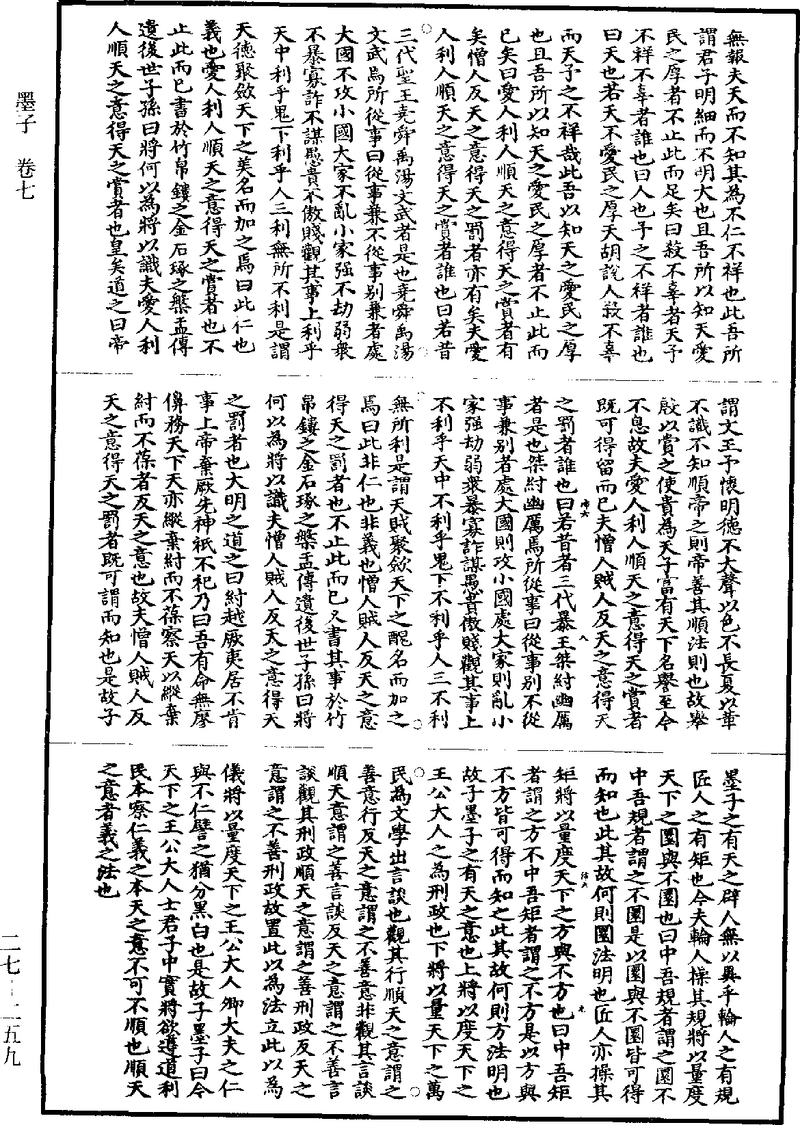 無報夫天而不知其為不仁不祥也此吾所
謂君子明細而不明大也且吾所以知天愛
民之厚者不止此而足矣曰殺不辜者天予
不祥不辜者誰也曰人也予之不祥者誰也
曰天也若天不愛民之厚天胡說人殺不辜
而天予之不祥哉此吾以知天之愛民之厚
也且吾所以知天之愛民之厚者不止此而
已矣曰愛人利人順天之意得天之賞者有
矣憎人反天之意得天之罰者亦有矣夫愛
人利人順天之意得天之賞者誰也曰若昔
三代聖王堯舜禹湯文武者是也堯舜禹湯
文武焉所從事曰從事兼不從事别兼者處
大國不攻小國大家不亂小家强不劫弱衆
不暴寡詐不謀愚貴不傲賤觀其事上利乎
天中利乎鬼下利乎人三利無所不利是謂
天德聚斂天下之美名而加之焉曰此仁也
義也愛人利人順天之意得天之賞者也不
止此而已書於竹帛鏤之金石琢之槃盂傳
遺後世子孫曰將何以為將以識夫愛人利
人順天之意得天之賞者也皇矣道之曰帝
謂文王予懷明德不大聲以色不長夏以革
不識不知順帝之則帝善其順法則也故舉
殷以賞之使貴為天子富有天下名譽至今
不息故夫愛人利人順天之意得天之賞者
既可得留而已夫憎人賊人反天之意得天
之罰者誰也曰若昔者三代暴王桀紂幽厲
者是也桀紂幽厲焉所從事曰從事别不從
事兼别者處大國則攻小國處大家則亂小
家强劫弱衆暴寡詐謀愚貴傲賤觀其事上
不利乎天中不利乎鬼下不利乎人三不利
無所利是謂天賊聚斂天下之醜名而加之
焉曰此非仁也非義也憎人賊人反天之意
得天之罰者也不止此而已又書其事於竹
帛鏤之金石琢之槃盂傳遺後世子孫曰將
何以為將以識夫憎人賊人反天之意得天
之罰者也大明之道之曰紂越厥夷居不肯
事上帝棄厥先神祇不祀乃曰吾有命無廖
𠏿務天下天亦縱棄紂而不葆察天以縱棄
紂而不葆者反天之意也故夫憎人賊人反
天之意得天之罰者既可謂而知也是故子
墨子之有天之辟人無以異乎輪人之有規
匠人之有矩也今夫輪人操其規將以量度
天下之圜與不圜也曰中吾規者謂之圜不
中吾規者謂之不圜是以圜與不圜皆可得
而知也此其故何則圜法明也匠人亦操其
矩將以量度天下之方與不方也曰中吾矩
者謂之方不中吾矩者謂之不方是以方與
不方皆可得而知之此其故何則方法明也
故子墨子之有天之意也上將以度天下之
王公大人之為刑政也下將以量天下之萬
民為文學出言談也觀其行順天之意謂之
善意行反天之意謂之不善意非觀其言談
順天意謂之善言談反天之意謂之不善言
談觀其刑政順天之意謂之善刑政反天之
意謂之不善刑政故置此以為法立此以為
儀將以量度天下之王公大人卿大夫之仁
與不仁譬之猶分黑白也是故子墨子曰今
天下之王公大人士君子中實將欲遵道利
民本察仁義之本天之意不可不順也順天
之意者義之法也
墨子 卷七
二七－二五九